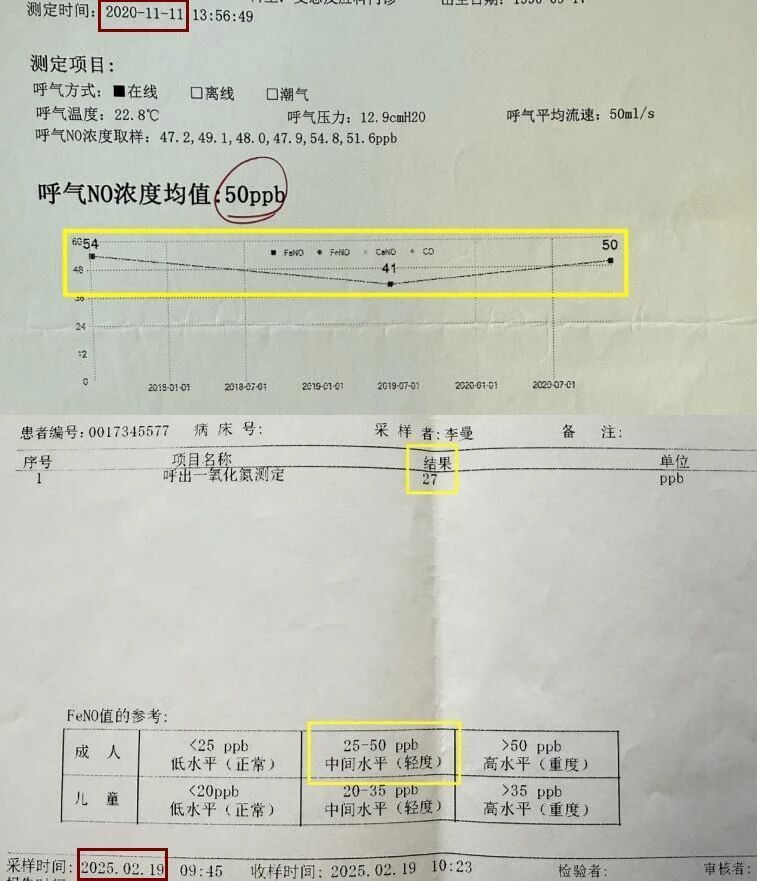 测定时间: 2020-11-11 13:56:49
测定项目:
呼气方式: ■在线 □离线 □潮气
呼气温度: 22.8℃ 呼气压力: 12.9cmH2O 呼气平均流速: 50ml/s
呼气NO浓度取样: 47.2,49.1,48.0,47.9,54.8,51.6ppb
呼气NO浓度均值:50ppb
60 54 50
FeNO FnNO CaNO CO
48 41
36
24
12
0
2018-01-01 2018-07-01 2019-01-01 2019-07-01 2020-01-01 2020-07-01
患者编号:0017345577 病 床 号: 采 样 者:李曼 备 注:
序号 项目名称 结果 单位
1 呼出一氧化氮测定 27 ppb
FeNO值的参考:
成 人 <25 ppb 25-50 ppb >50 ppb
低水平(正常) 中间水平(轻度) 高水平(重度)
儿 童 <20ppb 20-35 ppb >35 ppb
低水平(正常) 中间水平(轻度) 高水平(重度)
采样时间: 2025.02.19 09:45 收样时间: 2025.02.19 10:23 检验者: 审核者: